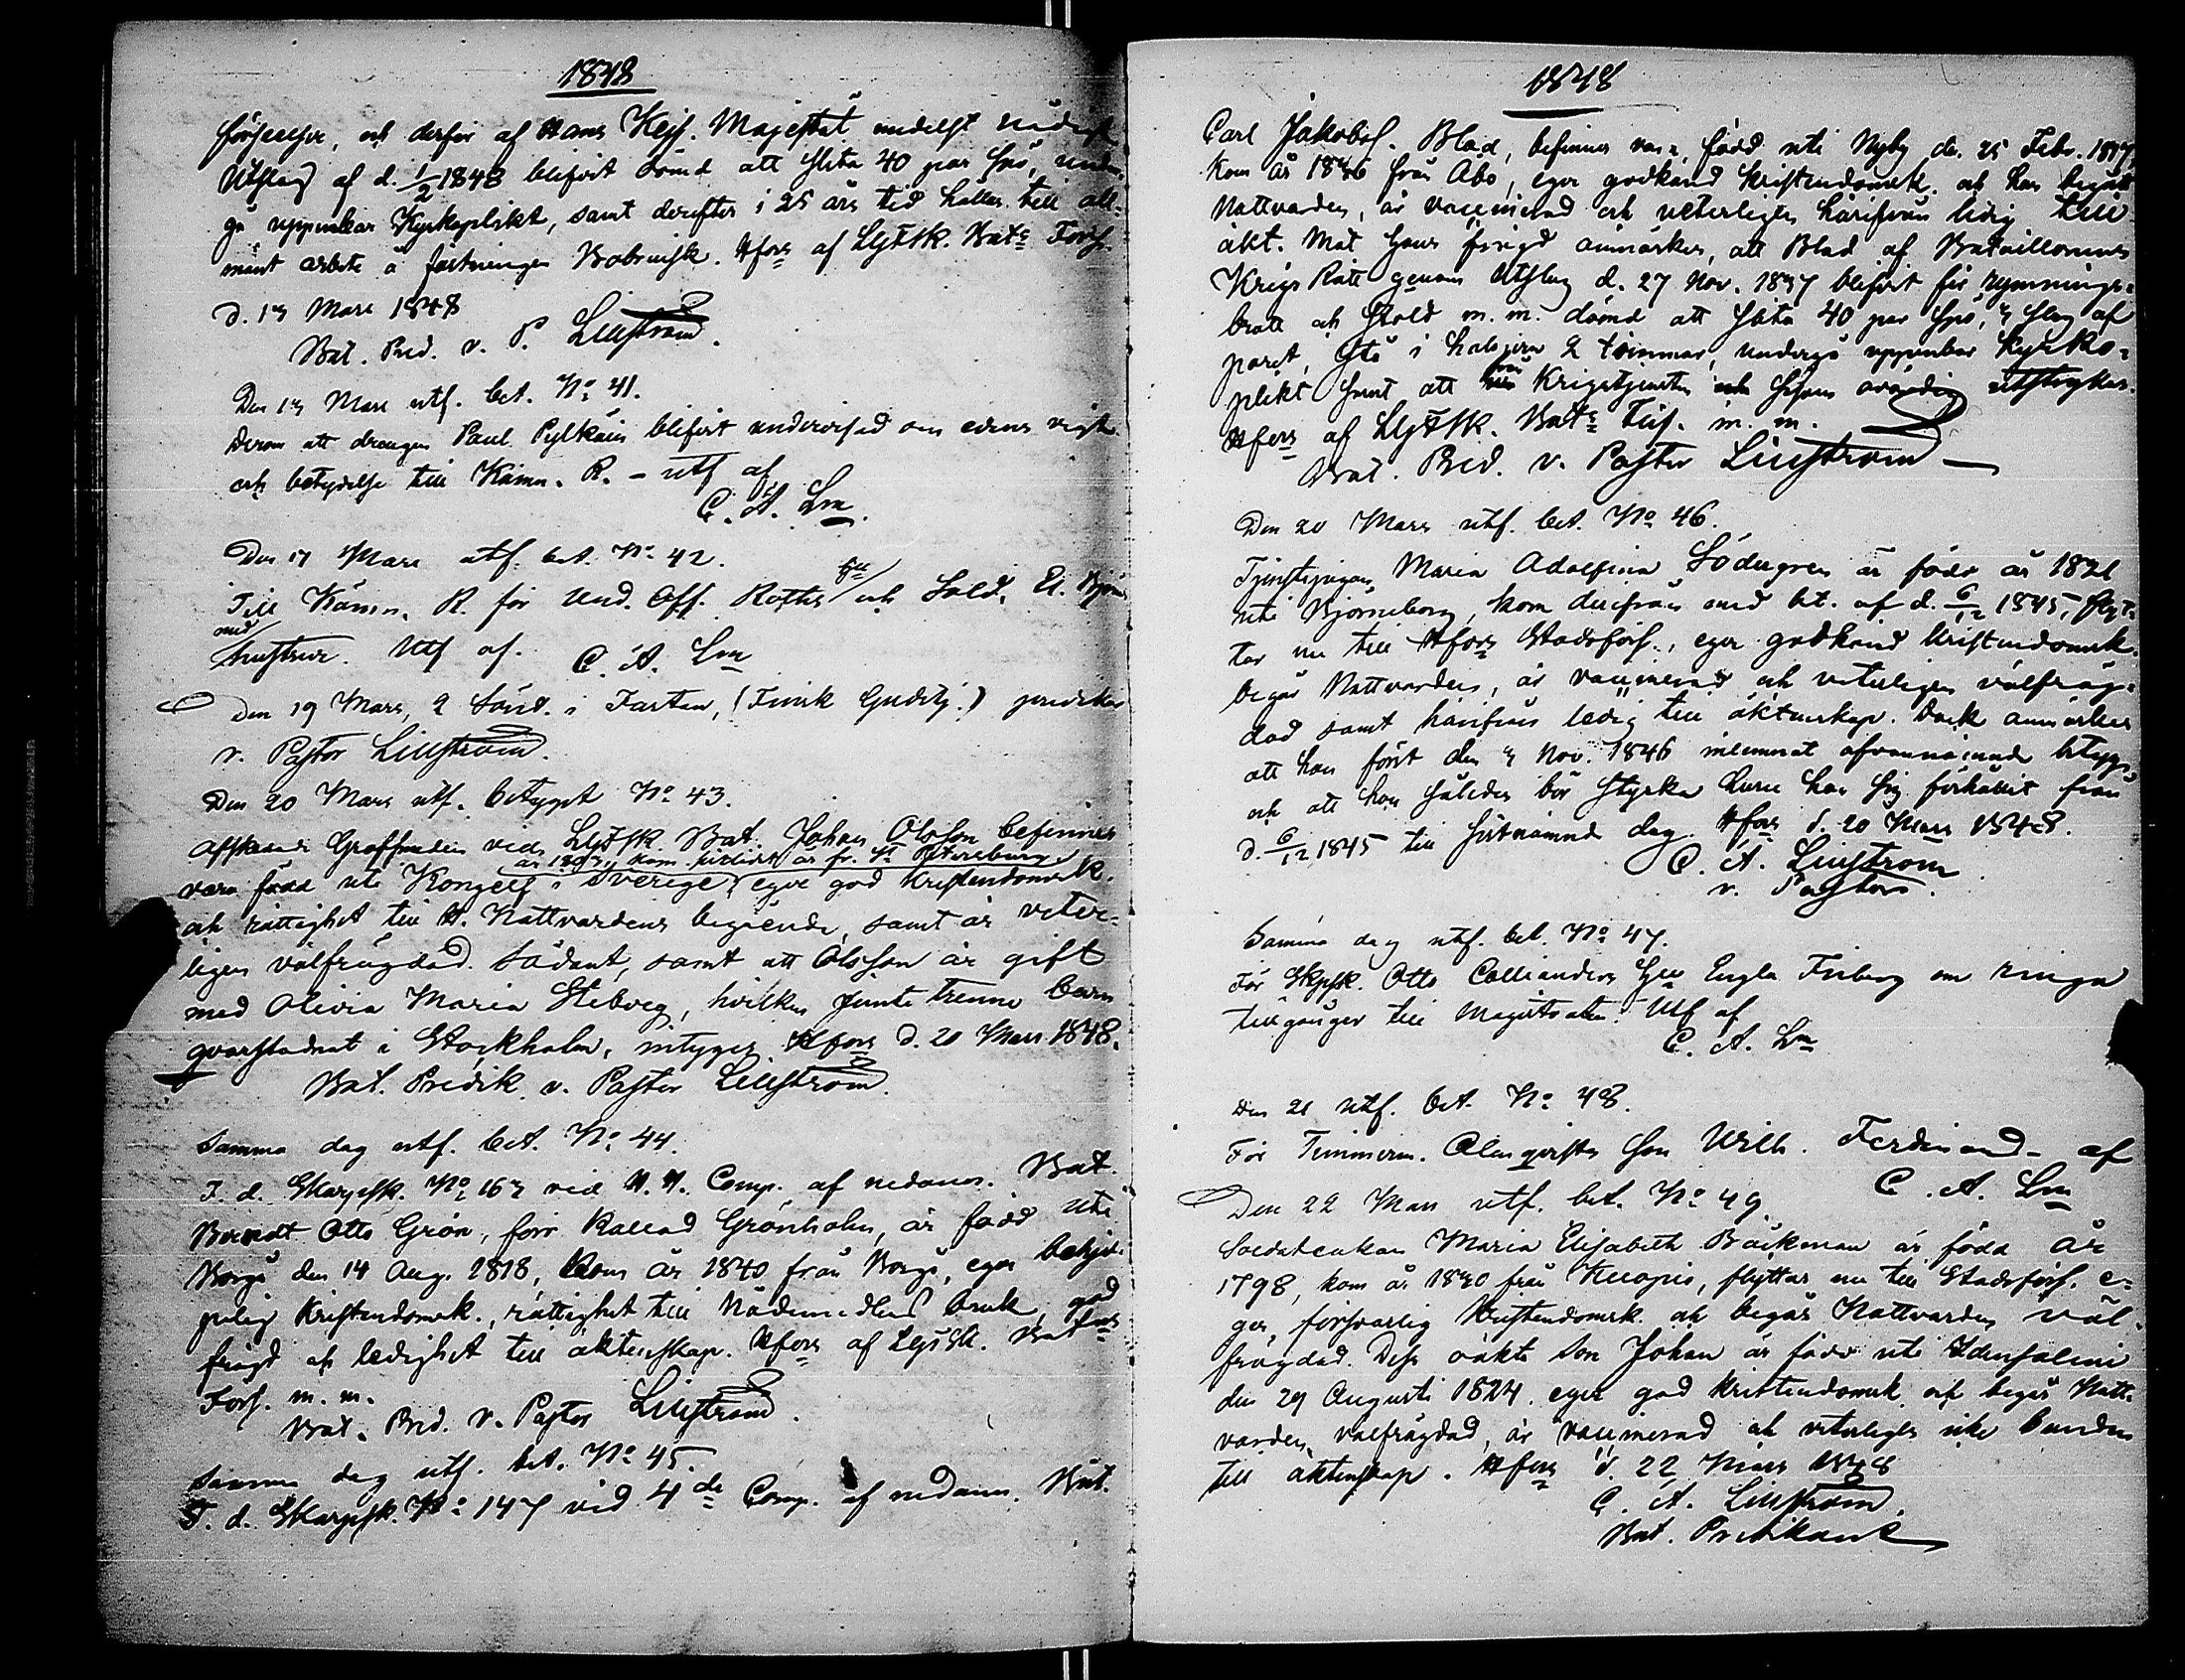 1848
förseelse, och derför af Hans Kejs. Majestät medelst nådigt
Utslag af d. 1/2 1848 blifvit dömd att slita 40 par spö, under-
gå uppenbar Kyrkoplikt, samt derefter i 25 års tid hållas till all-
mänt arbete å fästningen Bobruisk. Hfors af LGFSk. Bats Förs.
d. 13 Mars 1848
Bat. Pred. v. P. Lillström.
Den 13 Mars utf. bet. No 41.
Derom att drängen Paul Pylkäin blifvit undervisad om edens vigt
och betydelse till Kämn. R. - utf af
C. A. Lm.
Den 17 Mars utf. bet. No 42.
Till Kämn. R. för Und. Off. och Sold. El. Björn
med
hustrur. Utf af. C. A. Lm
Den 19 Mars, 2 Sönd. i Fastan, (Finsk Gudstj.) predikar
v. Pastor Lillström.
Den 20 Mars utf. betyget No 43.
Afskedade Gossen vid LGFSk. Bat. Johan Olsson befinnes
år kom år fr. St Petersburg
vara född uti Kongelf i Sverige, eger god Kristendomsk.
och rättighet till H. Nattvardens begående, samt är veter-
ligen välfrägdad. Sådant, samt att Olsson är gift
med Olivia Maria Steberg, hvilken jemte trenne barn
qvarstadnat i Stockholm, intygas. Hfors d. 20 Mars 1848.
Bat. Predik. v. Pastor Lillström.
Samma dag utf. bet. No 44.
F. d. Skarpsk. No 163 vid N. N. Comp. af nedann. Bat.
Berndt Otto Grön, förr kallad Grönholm, är född uti
Borgå den 14 Aug. 1818, kom år 1840 från Borgå, eger behjel-
pelig Kristendomsk., rättighet till Nådemedlens bruk, god
frägd och ledighet till äktenskap. Hfors af LGFSk. Bats
Förs. m. m.
Bat. Pred. v. Pastor Lillström.
Samma dag utf. bet. No 45.
F. d. Skarpsk. No 147 vid 4de Comp. af nedann. Bat.
1848
Carl Jakobs. Blad, befinnes vara född uti Nyby, den 25 Febr.
kom år 1846 från Åbo, eger godkänd kristendomsk. och har begått
Nattvarden, är vaccinerad och veterligen härifrån ledig till
äkt. Mot hans frägd anmärkes, att Blad af Bataillonens
Krigs Rätt genom Utslag d. 27 Nov. 1847 blifvit för rymnings-
brott och stöld m. m. dömd att slita 40 par spö, 3 slag af
paret, stå i halsjern 2 timmar, undergå uppenbar Kyrko-
plikt samt att från Krigstjensten såsom ovärdig utstrykas.
Hfors af LGFSk. Bats Förs. m. m.
Bat. Pred. v. Pastor Lillström
Den 20 Mars utf. bet. No 46.
Tjenstepigan Maria Adolfina Södergren är född år 1821
uti Björneborg, kom derifrån med bet. af d. 6/12 1845, flyt-
tar nu till Hfors Stadsförs., eger godkänd Kristendomsk.
begår Nattvarden, är vaccinerad och veterligen välfräg-
dad samt härifrån ledig till äktenskap. Dock anmärkes
att hon först den 3 Nov. 1846 inlemnat ofvannämnde betyg,
och att hon således bör styrka huru hon sig förhållit från
d. 6/12 1845 till sistnämnde dag. Hfors d. 20 Mars 1848.
C. A. Lillström
v. Pastor.
Samma dag utf. bet. No 47.
För Skpsk. Otto Collianders Engla Friberg om ringa
tillgångar till Magistraten. Utf af
C. A. Lm
Den 21 utf. bet. No 48.
För Timmerm. Almqvists son Wilh. Ferdinand - af
C. A. Lm
Den 22 Mars utf. bet. No 49.
Soldatenkan Maria Elisabeth Bäckman är född år
1798, kom år 1830 från Kuopio, flyttar nu till Stadsförs. e-
ger försvarlig Kristendomsk. och begår Nattvarden väl-
frägdad. Dess oäkta son Johan är född uti Idensalmi
den 29 Augusti 1824, eger god kristendomsk. och begår Natt-
varden, välfrägdad, är vaccinerad och veterligen icke bunden
till äktenskap. Hfors d. 22 Mars 1848
C. A. Lillström.
Bat. Predikant